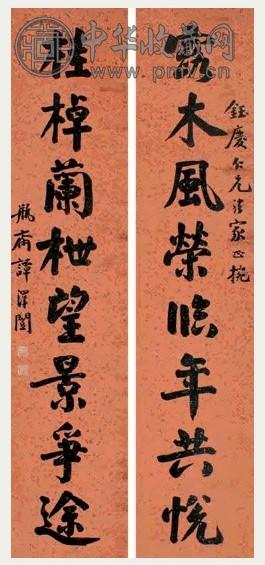 中华收藏网
鈺慶仁兄法家正捥
露木風榮臨年共悅
桂棹蘭枻望景爭途
瓶齋譚澤闓